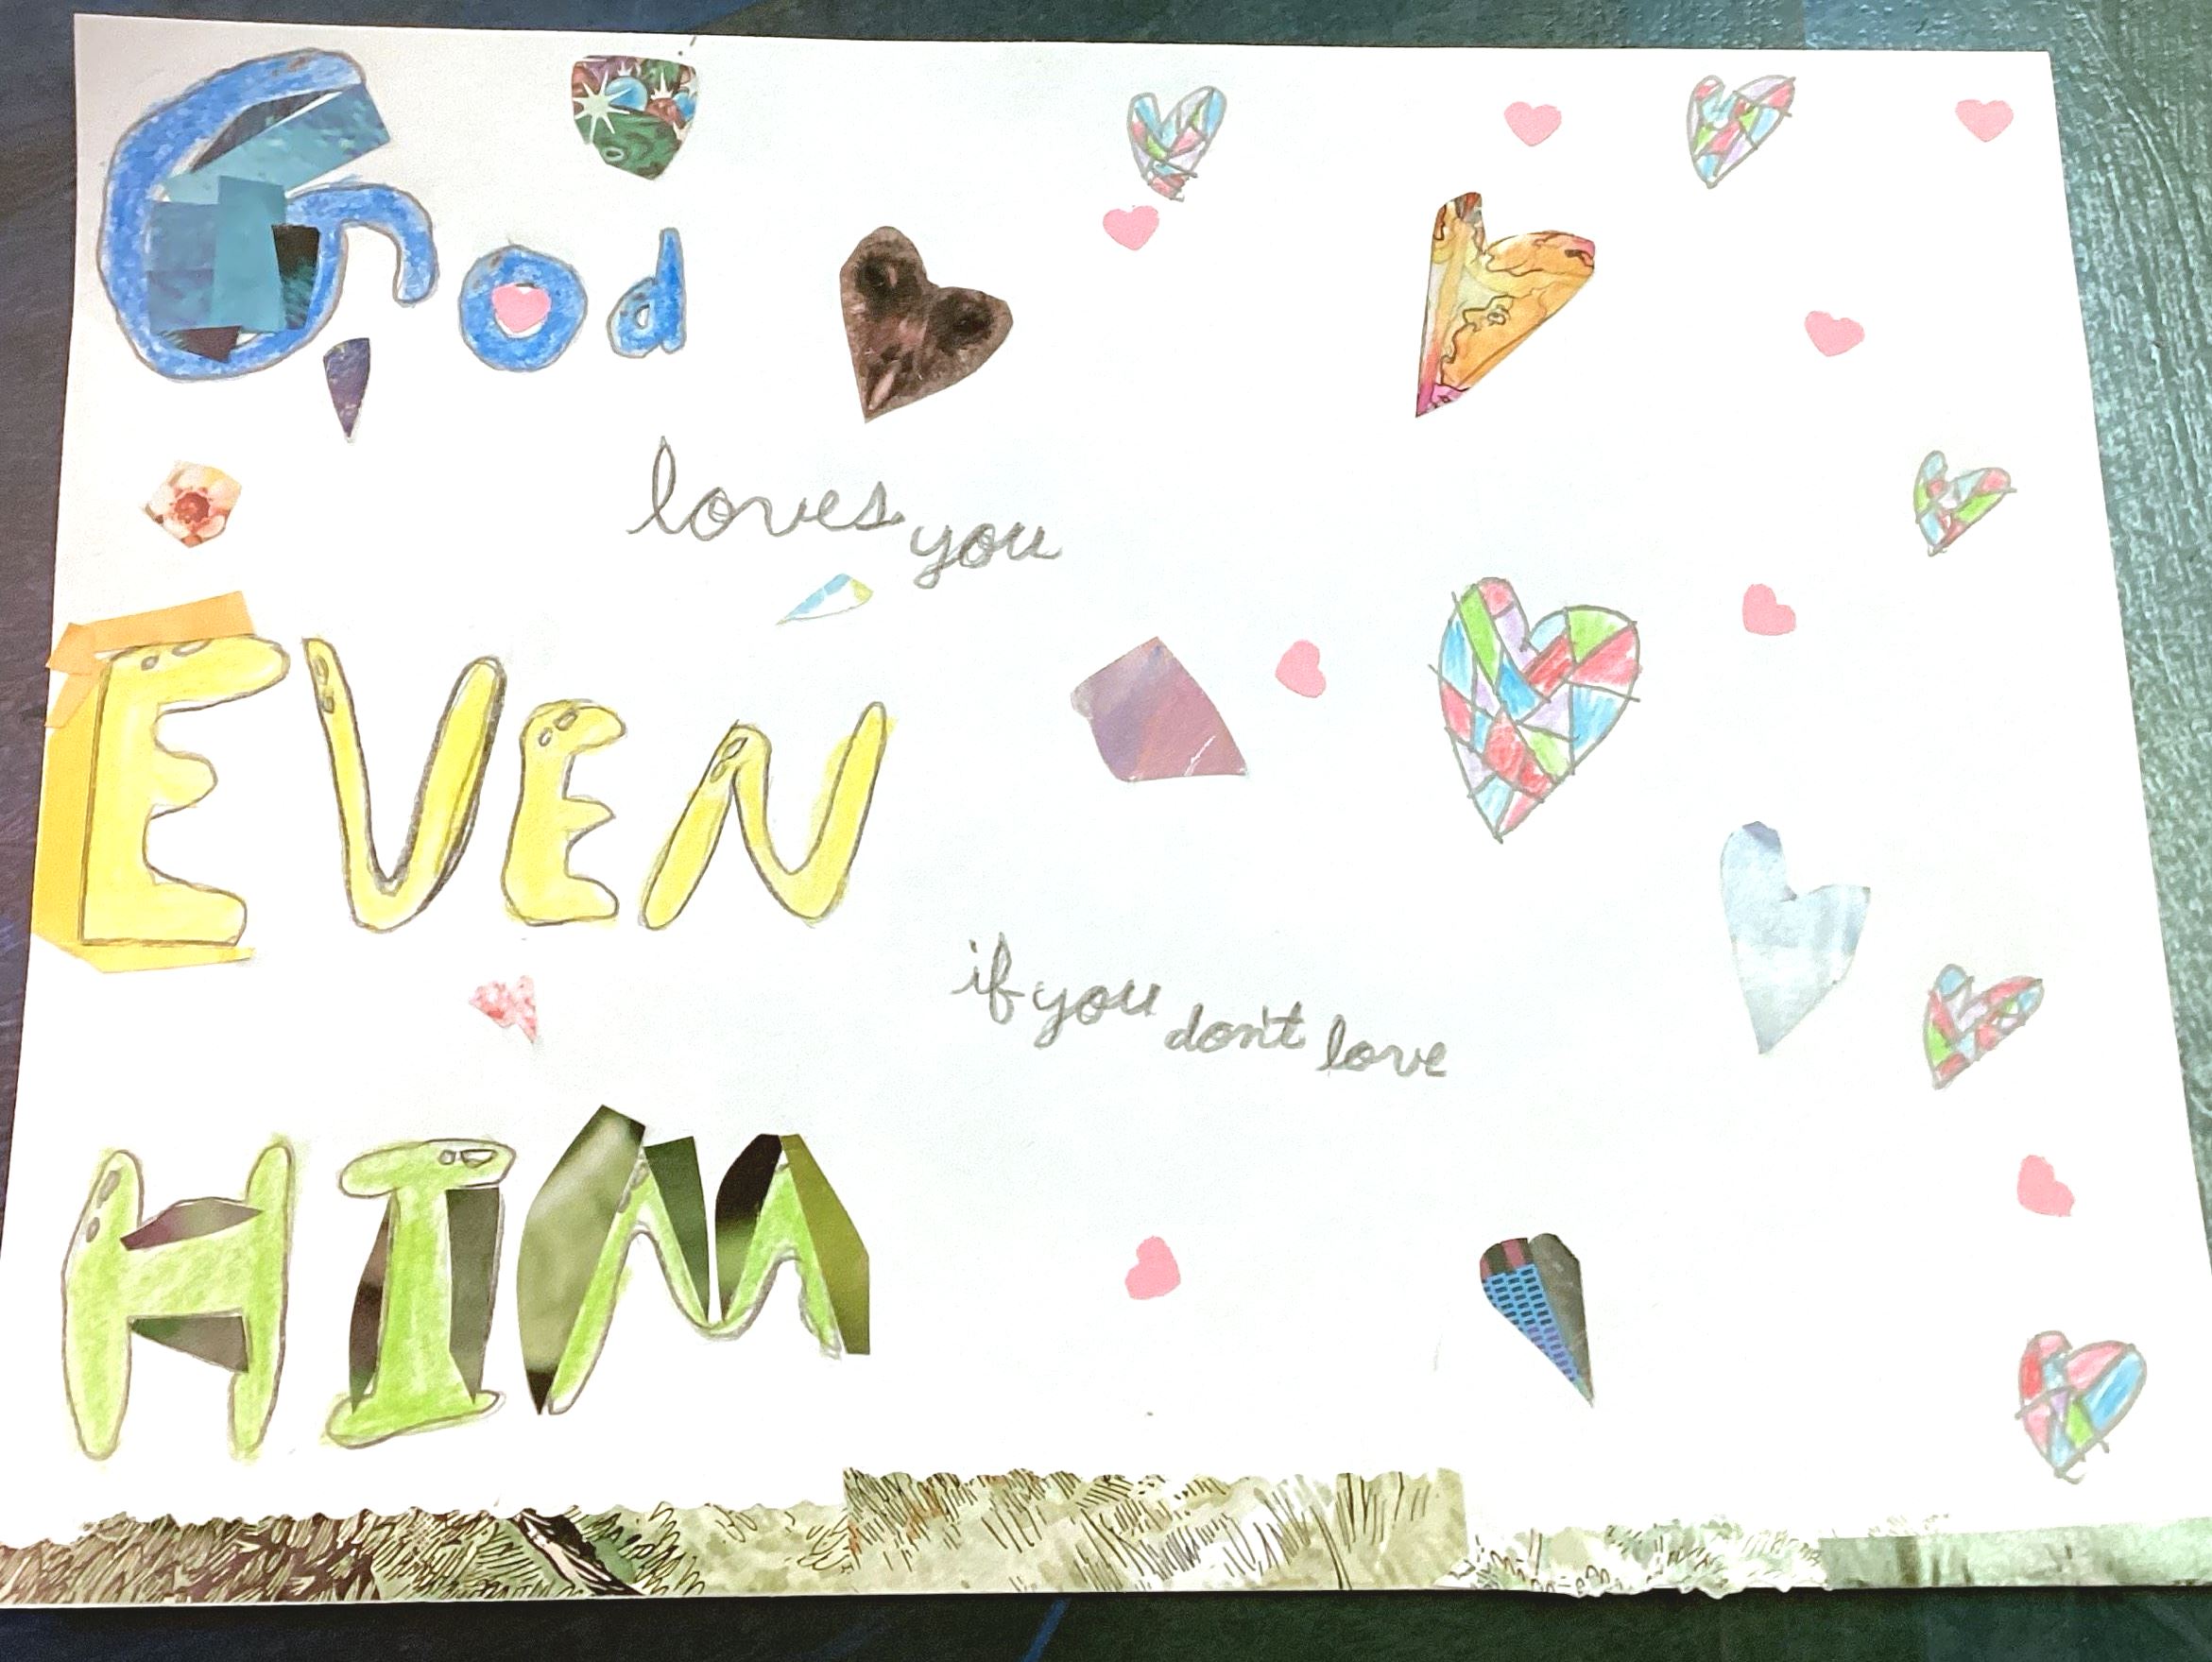 God
loves you
EVEN
if you don't love
HIM